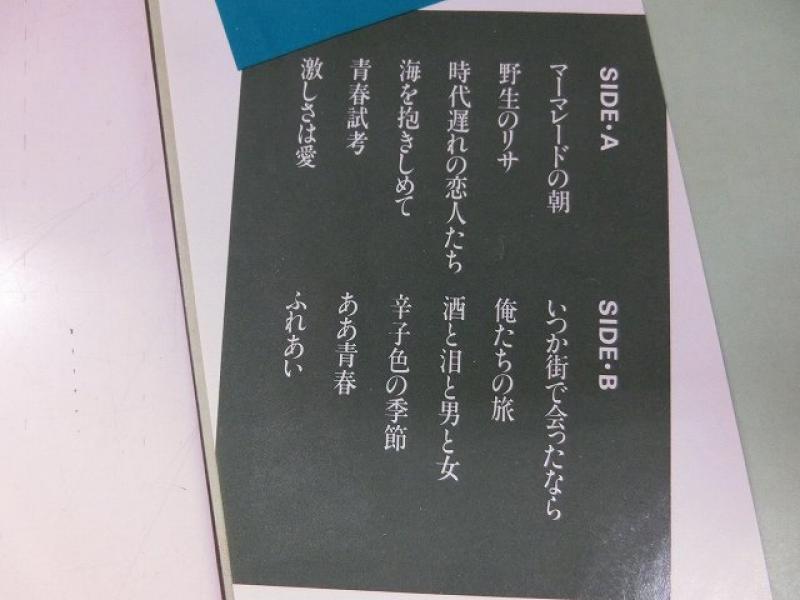 SIDE・A
マーマレードの朝
野生のリサ
時代遅れの恋人たち
海を抱きしめて
青春試考
激しさは愛
SIDE・B
いつか街で会ったなら
俺たちの旅
酒と泪と男と女
辛子色の季節
ああ青春
ふれあい